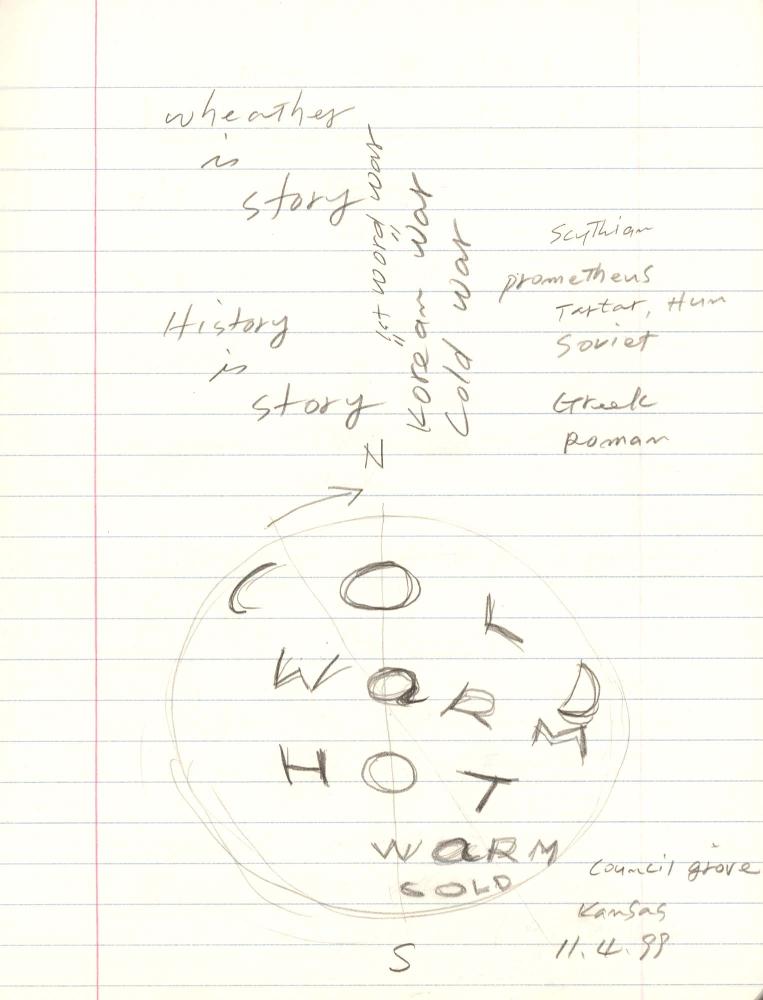 wheather
is
story
History
is
story
Korean War
Cold War
Scythian
prometheus
Tartar, Hun
Soviet
Greek
Roman
N
C O L D
W a R M
H O T
W a R M
C O L D
S
Council grove
Kansas
11.4.99